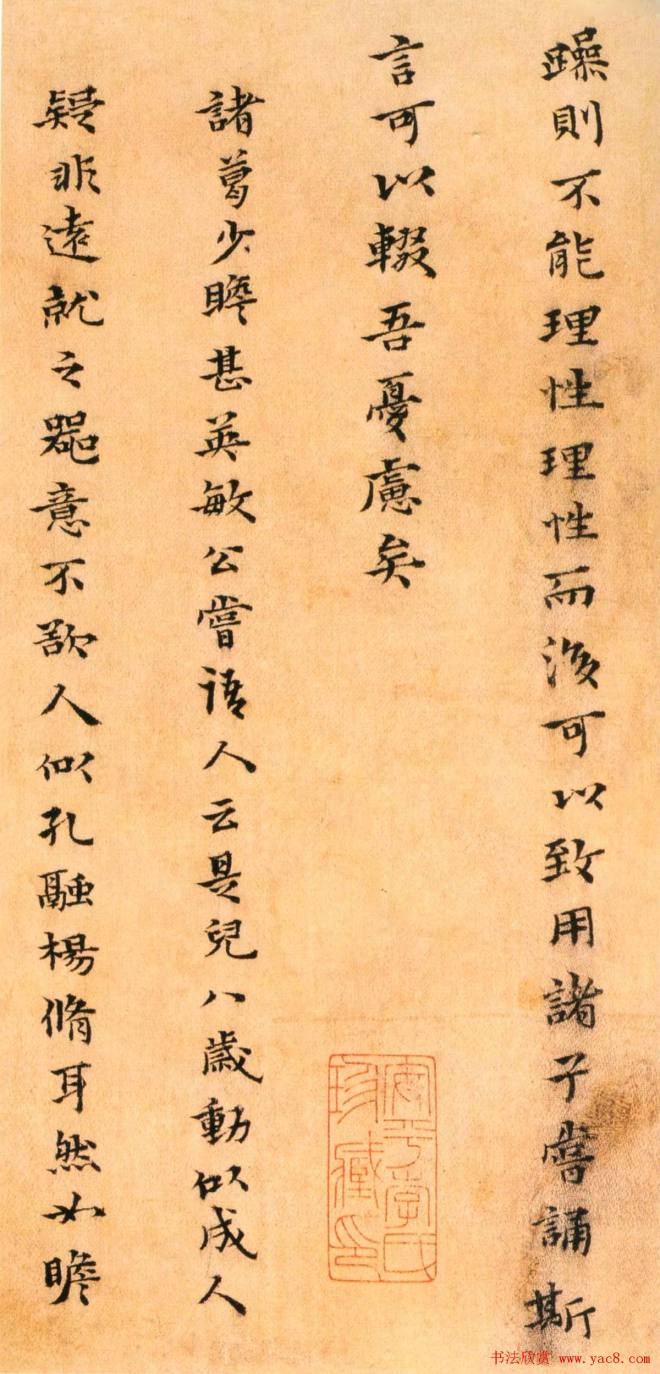 躁則不能理性理性而後可以致用諸子嘗誦斯
言可以輟吾憂慮矣
諸葛少瞻甚英敏公嘗語人云是兒八歲動似成人
疑非遠就之器意不欲人似孔融楊脩耳然如瞻
平李氏
珍藏印
书法欣赏 www.yac8.com